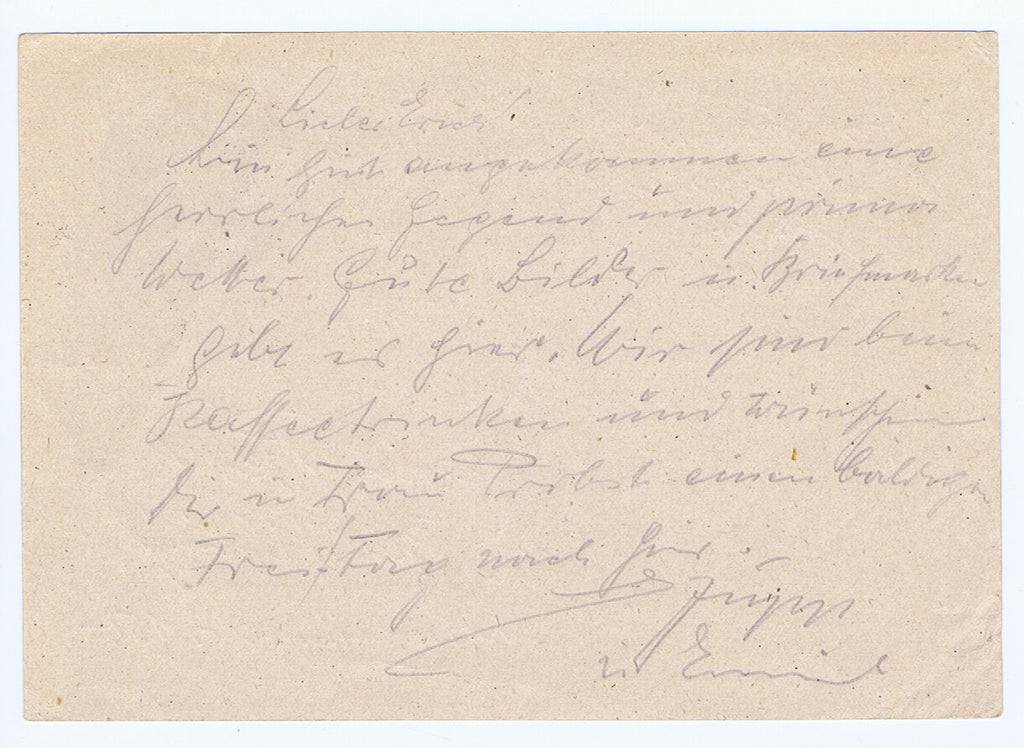 Lieber Erich!
Bin gut angekommen eine
herrliche Gegend und prima
Wetter. Gute Bilder u. Briefmarken
gibt es hier. Wir sind beim
Kaffeetrinken und wünschen
Dir u Frau Probst einen baldigen
Freitag nach hier.
u Emil